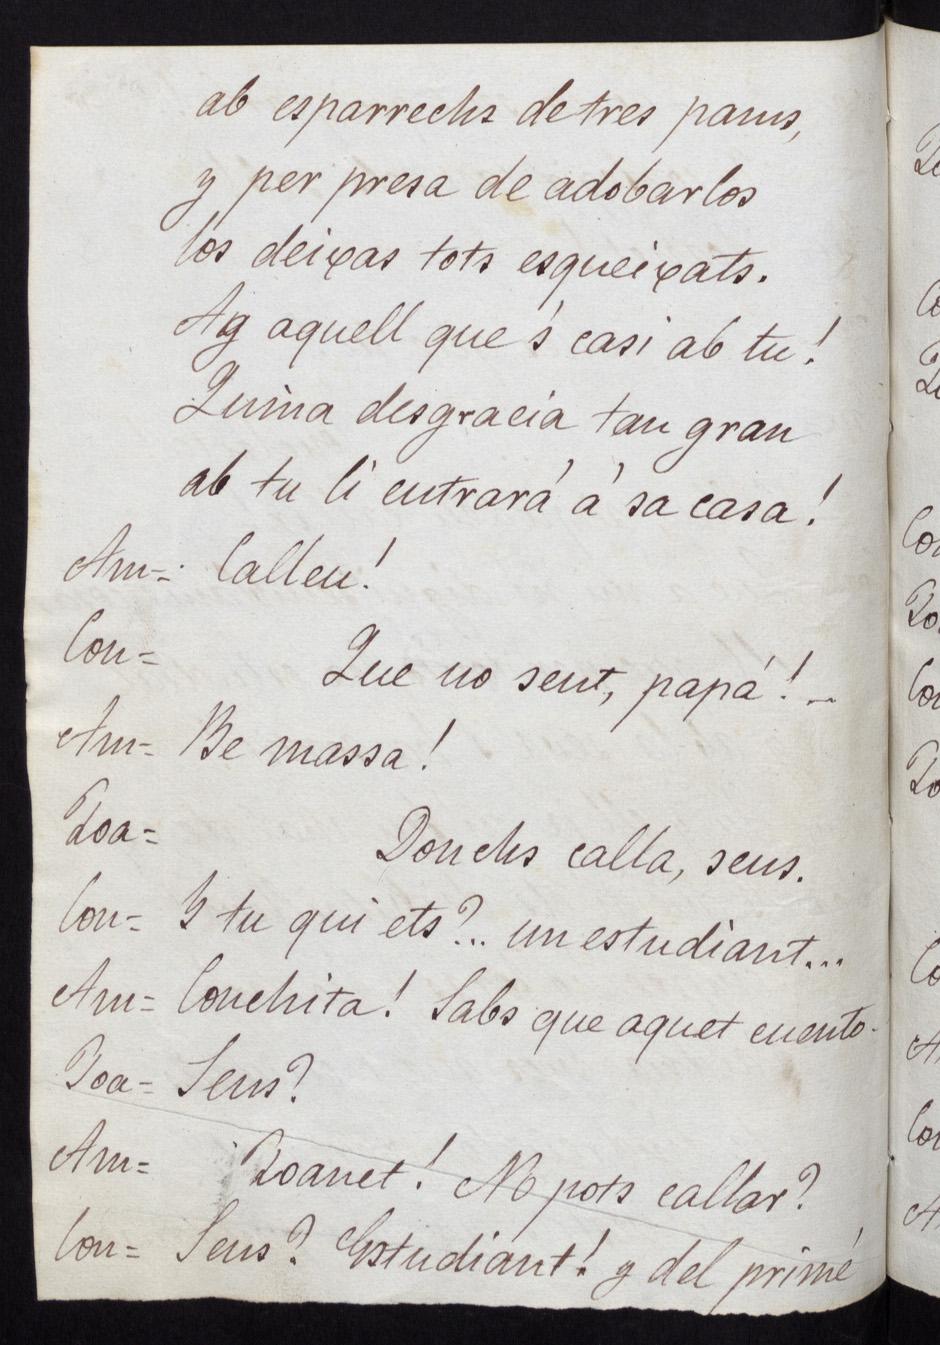 ab esparrechs de tres pams,
y per presa de adobarlos
los deixas tots esqueixats.
Ay aquell que 's casi ab tu!
Quina desgracia tan gran
ab tu li entrará á sa casa!
Am=: Calleu!
Con= Que no sent, papá!_
Am= Be massa!
Joa= Donchs calla, sens.
Con= Y tu qui ets?.. un estudiant...
Am= Conchita! Sabs que aquet cuento-
Joa= Sens?
Am= Joanet! No pots callar?
Con= Sens? Estudiant! y del primé